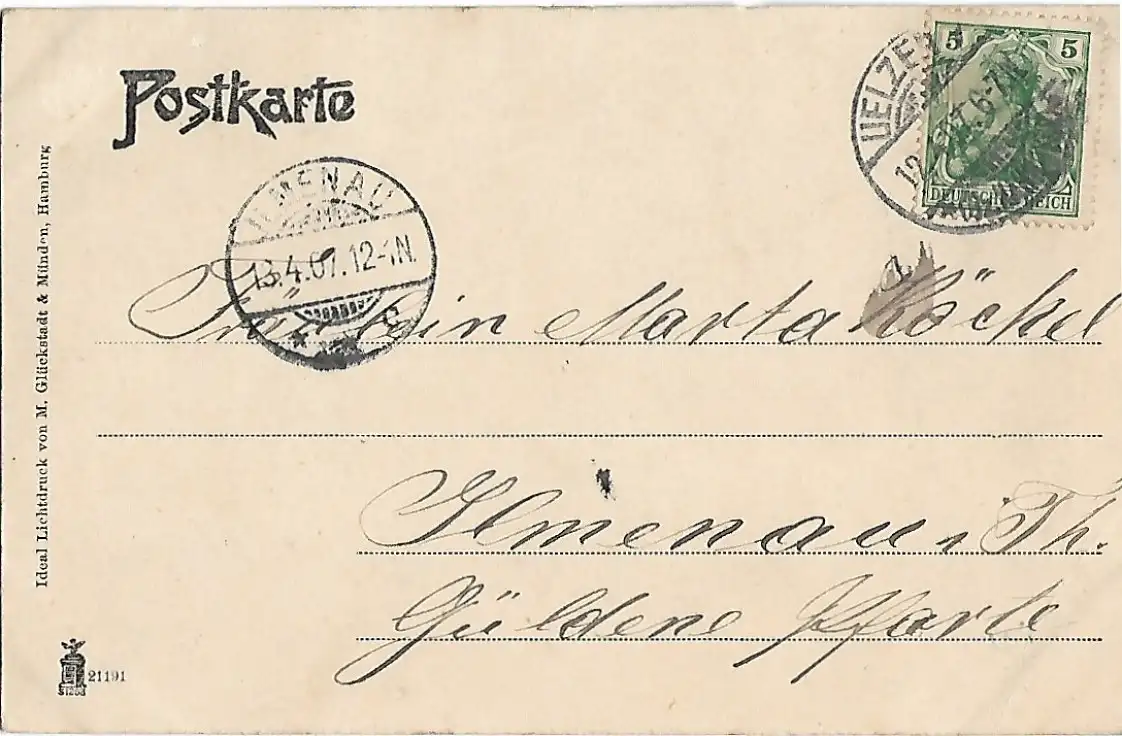 Postkarte
5 5
DEUTSCHES REICH
UELZEN
ILMENAU
13.4.07.12-1N.
* c
Fräulein Marta Köckel
Ilmenau i Th.
Güldene Pforte
Ideal Lichtdruck von M. Glückstadt & Münden, Hamburg
21191